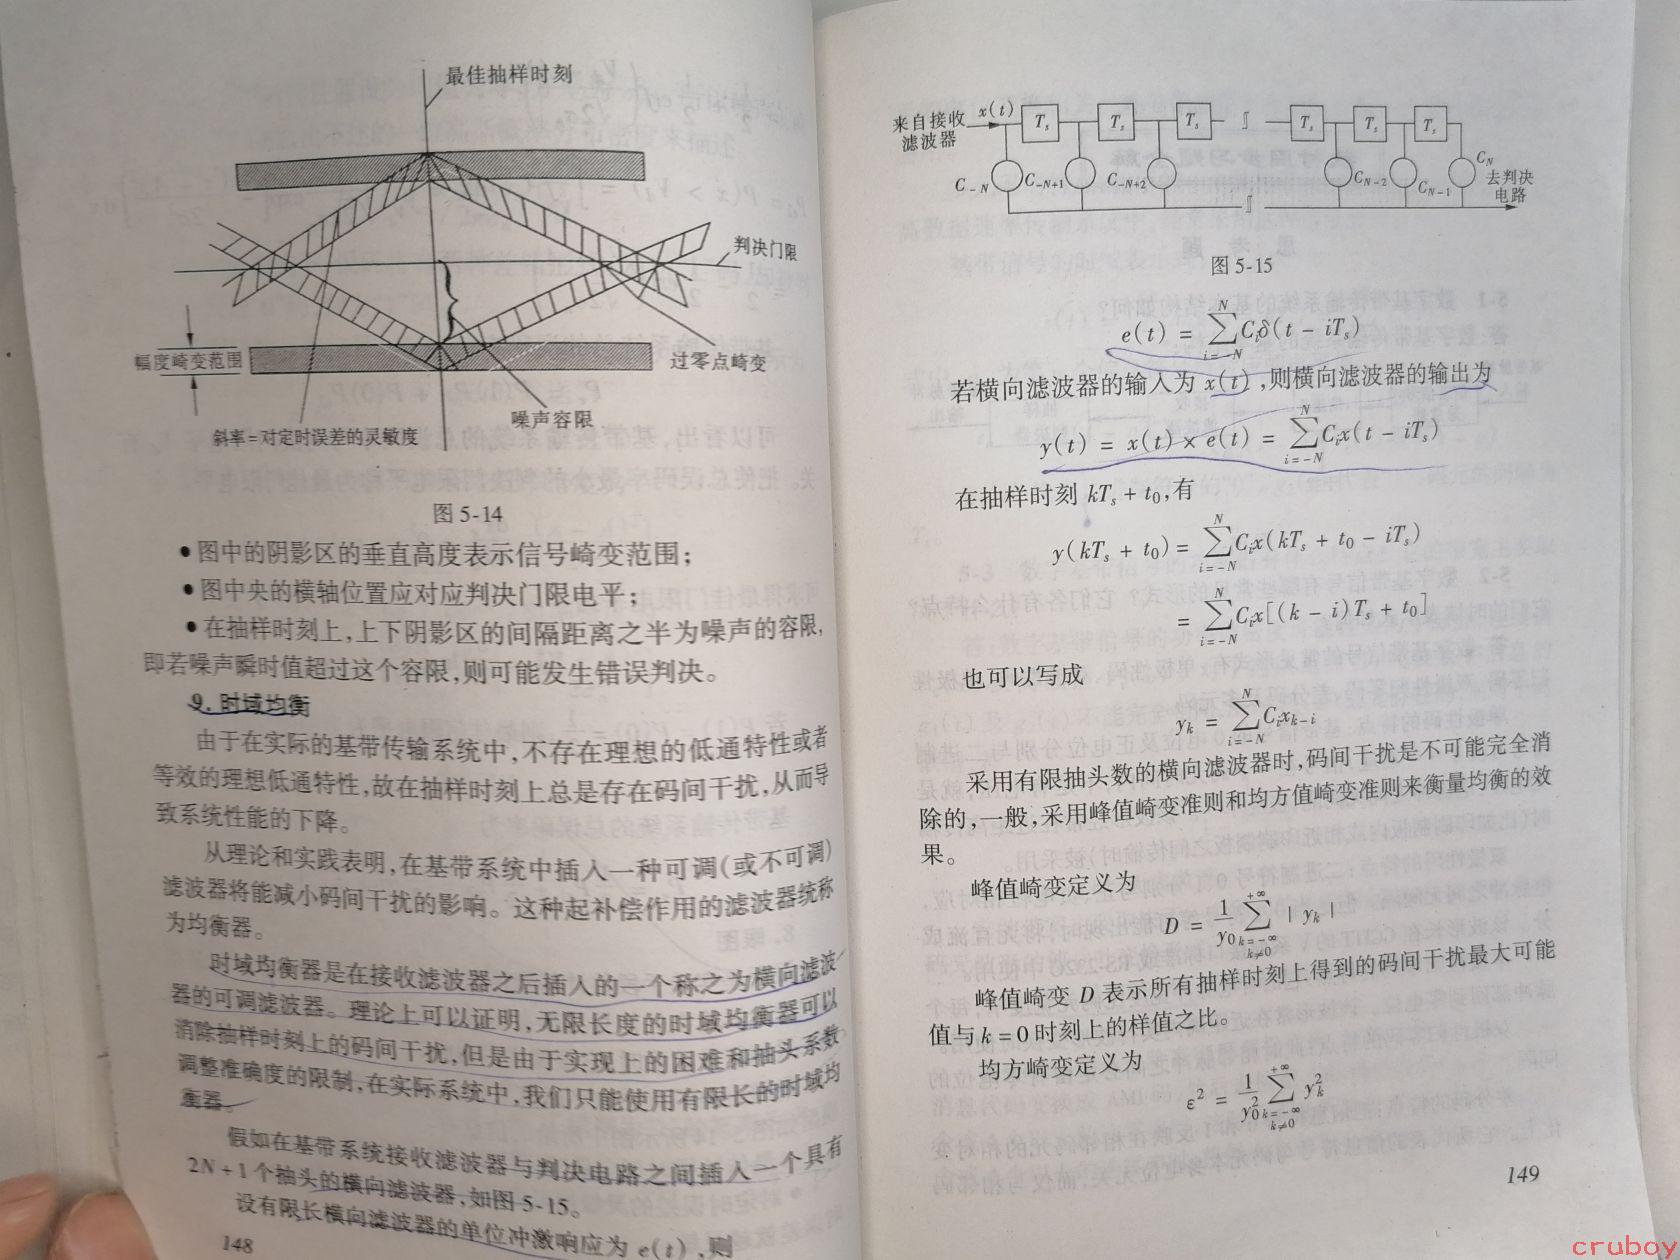 最佳抽样时刻
判决门限
幅度畸变范围
过零点畸变
噪声容限
斜率=对定时误差的灵敏度
图 5-14
●图中的阴影区的垂直高度表示信号畸变范围;
●图中央的横轴位置应对应判决门限电平;
●在抽样时刻上,上下阴影区的间隔距离之半为噪声的容限,
即若噪声瞬时值超过这个容限,则可能发生错误判决。
9. 时域均衡
由于在实际的基带传输系统中,不存在理想的低通特性或者
等效的理想低通特性,故在抽样时刻上总是存在码间干扰,从而导
致系统性能的下降。
从理论和实践表明,在基带系统中插入一种可调(或不可调)
滤波器将能减小码间干扰的影响。这种起补偿作用的滤波器统称
为均衡器。
时域均衡器是在接收滤波器之后插入的一个称之为横向滤波
器的可调滤波器。理论上可以证明,无限长度的时域均衡器可以
消除抽样时刻上的码间干扰,但是由于实现上的困难和抽头系数
调整准确度的限制,在实际系统中,我们只能使用有限长的时域均
衡器。
假如在基带系统接收滤波器与判决电路之间插入一个具有
2N+1 个抽头的横向滤波器,如图 5-15。
设有限长横向滤波器的单位冲激响应为 e(t),则
148
来自接收
滤波器
x(t)
T_s T_s T_s T_s T_s T_s
C_{-N} C_{-N+1} C_{-N+2} C_{N-2} C_{N-1} C_N
去判决
电路
图 5-15
e(t) = \sum_{i=-N}^{N} C_i δ(t - iT_s)
若横向滤波器的输入为 x(t),则横向滤波器的输出为
y(t) = x(t) × e(t) = \sum_{i=-N}^{N} C_i x(t - iT_s)
在抽样时刻 kT_s + t_0,有
y(kT_s + t_0) = \sum_{i=-N}^{N} C_i x(kT_s + t_0 - iT_s)
= \sum_{i=-N}^{N} C_i x[(k - i)T_s + t_0]
也可以写成
y_k = \sum_{i=-N}^{N} C_i x_{k-i}
采用有限抽头数的横向滤波器时,码间干扰是不可能完全消
除的,一般,采用峰值畸变准则和均方值畸变准则来衡量均衡的效
果。
峰值畸变定义为
D = \frac{1}{y_0} \sum_{k=-∞, k≠0}^{+∞} | y_k |
峰值畸变 D 表示所有抽样时刻上得到的码间干扰最大可能
值与 k = 0 时刻上的样值之比。
均方畸变定义为
ε^2 = \frac{1}{y_0^2} \sum_{k=-∞, k≠0}^{+∞} y_k^2
149
cruboy